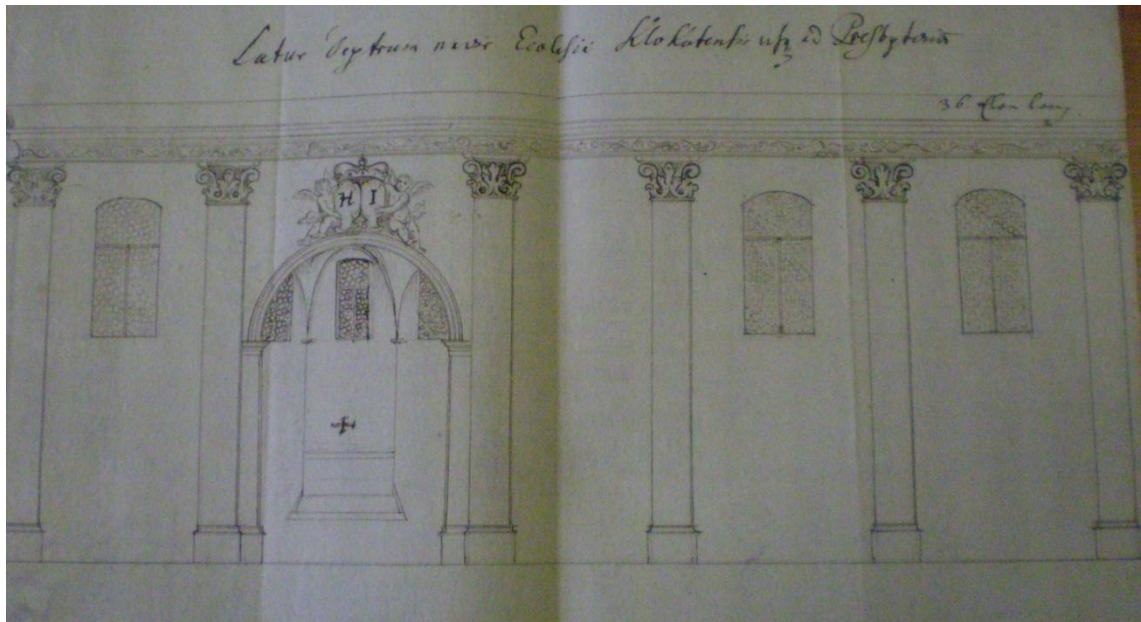 Latus dextrum navis Ecclesiæ Klokotensis usq ad Presbyterium
36 Elen lang
H I